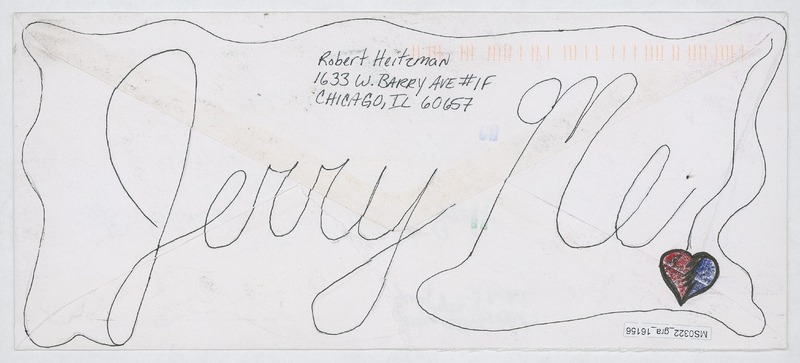 Robert Heitzman
1633 W. BARRY AVE #1F
CHICAGO, IL 60657
Jerry Me
MS0322_gra_16156